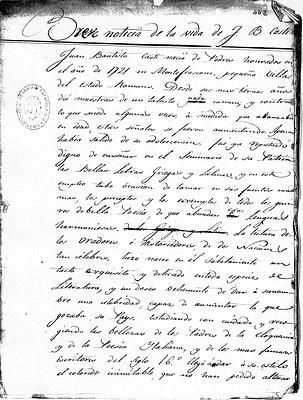 Breve noticia de la vida de J. B. Casti
Juan Bautista Casti nació de Padres honrados en
el año de 1721 en Montefiascone, pequeña villa
del estado Romano. Desde sus mas tiernos años
dió muestras de un talento nada comun, y contra
lo que suele algunas veces, á medida que
en edad, estas señales se fueron aumentando. Apenas
habia salido de su adolescencia, fue ya reputado
digno de enseñar en el Seminario de su Patria
las Bellas letras Griegas y Latinas, y en este
empleo tubo ocasion de tomar en sus fuentes mis-
mas, los preceptos y los exemplos de todo los gene-
ros de bella Poesia, de que abundan lenguas
harmoniosas. La lectura de
los Oradores é historiadores de dos Naciones
tan célebres, hizo nacer en él un
tacto exquisito y delicado en toda especie de
Literatura, y un deseo vehemente de dar á
bre una celebridad capaz de aumentar la que
gozaba su Pays. Estudiando con cuidado y
giendo las bellezas de los Padres de la Eloquencia
y de la Poesia Italiana, y de los mas famosos
escritores del Siglo 16.º llegó á dar á su estilo
el colorido inimitable que no han podido alterar